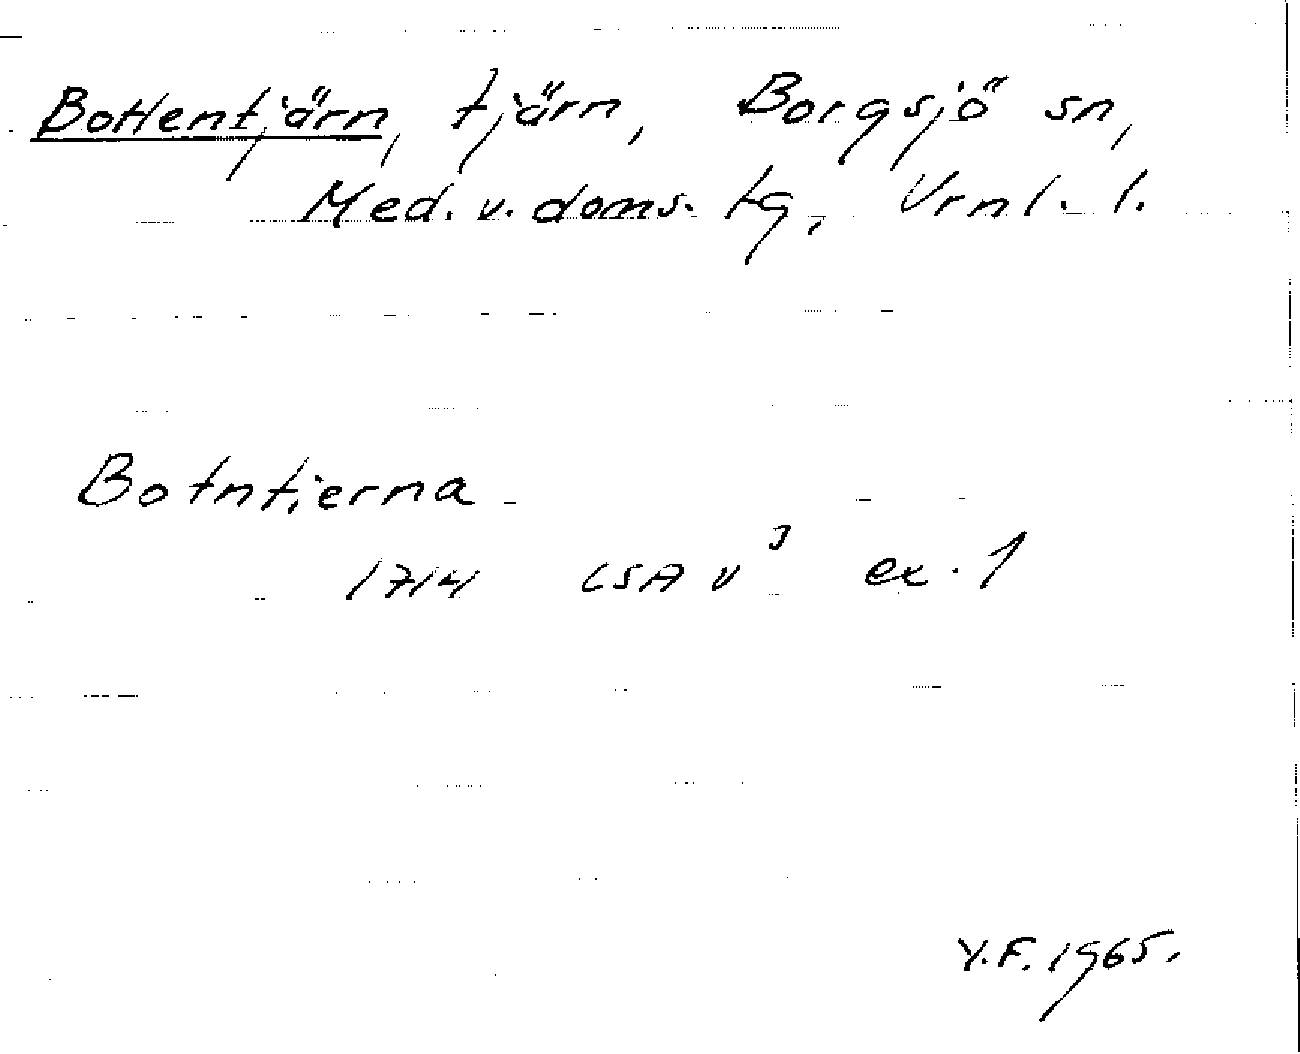 Bottentjärn, tjärn, Borgsjö sn,
Med. v. doms. tg, Vrnl. l.
Botntierna
1714 LSA v³ ex. 1
Y.F. 1965.